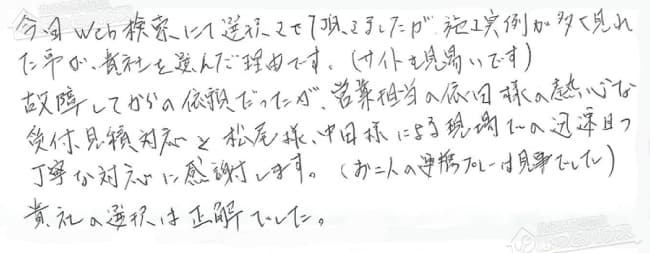 今回Web検索にて選択させて頂きましたが、施工実例が多く見れ
た事が、貴社を選んだ理由です。(サイトも見易いです)
故障してからの依頼だったが、営業担当の依田様の熱心な
受付、見積対応と松尾様、中田様による現場での迅速且つ
丁寧な対応に感謝します。(お二人の連携プレーは見事でした)
貴社の選択は正解でした。